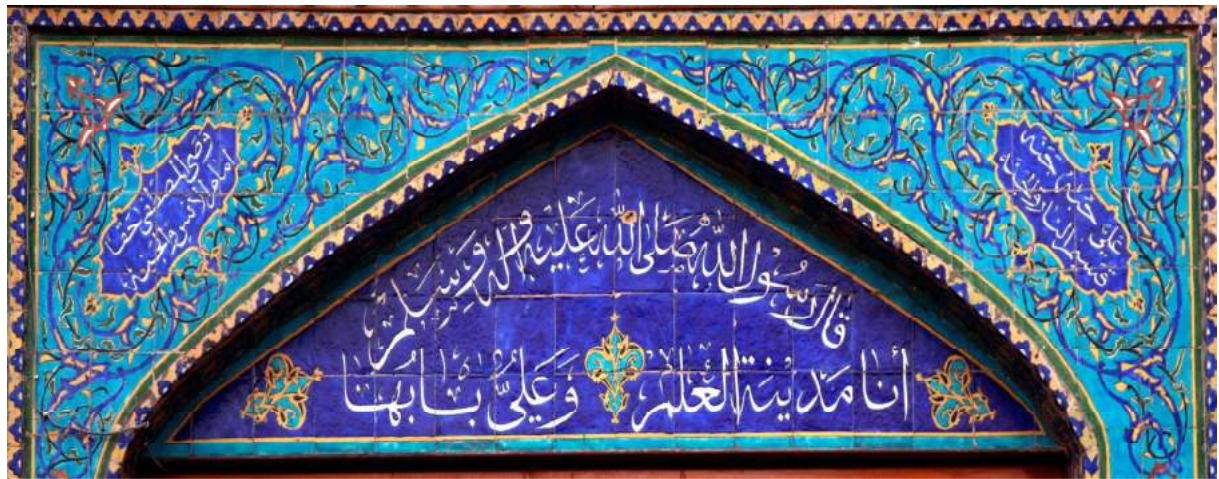 قال رسول الله صلى الله عليه وآله وسلم
أنا مدينة العلم وعليٌّ بابُها
عليّ حبه جنة
قسيم النار والجنة
وصي المصطفى حقا
إمام الإنس والجنة